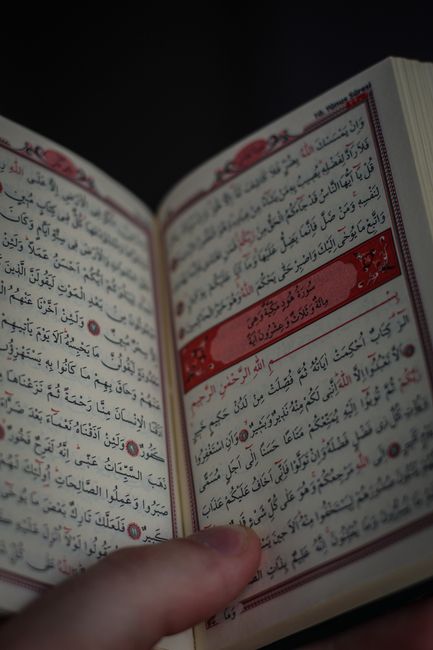 10. Yûnus Sûresi
وَاِنْ يَمْسَسْكَ اللّٰهُ بِضُرٍّ فَلَا كَاشِفَ لَهُ
فَلَا رَادَّ لِفَضْلِهِ يُصِيبُ بِهِ مَنْ يَشَاءُ مِنْ عِبَادِهِ
قُلْ يَا اَيُّهَا النَّاسُ قَدْ جَاءَكُمُ الْحَقُّ مِنْ
لِنَفْسِهِ وَمَنْ ضَلَّ فَاِنَّمَا يَضِلُّ عَلَيْهَا وَمَا اَنَا عَلَيْكُمْ بِوَكِيلٍ
وَاتَّبِعْ مَا يُوحٰى اِلَيْكَ وَاصْبِرْ حَتّٰى يَحْكُمَ اللّٰهُ وَهُوَ خَيْرُ
سُورَةُ هُودٍ مَكِّيَّةٌ وَهِيَ
مِائَةٌ وَثَلَاثٌ وَعِشْرُونَ اٰيَةً
بِسْمِ اللّٰهِ الرَّحْمٰنِ الرَّحِيمِ
الٓرٰ كِتَابٌ اُحْكِمَتْ اٰيَاتُهُ ثُمَّ فُصِّلَتْ مِنْ لَدُنْ حَكِيمٍ خَبِيرٍ
اَلَّا تَعْبُدُوا اِلَّا اللّٰهَ اِنَّنِي لَكُمْ مِنْهُ نَذِيرٌ وَبَشِيرٌ ﴿٢﴾ وَاَنِ اسْتَغْفِرُوا
رَبَّكُمْ ثُمَّ تُوبُوا اِلَيْهِ يُمَتِّعْكُمْ مَتَاعًا حَسَنًا اِلٰى اَجَلٍ مُسَمًّى
وَيُؤْتِ كُلَّ ذِي فَضْلٍ فَضْلَهُ وَاِنْ تَوَلَّوْا فَاِنِّي اَخَافُ عَلَيْكُمْ عَذَابَ
اللّٰهِ مَرْجِعُكُمْ وَهُوَ عَلٰى كُلِّ شَيْءٍ
صُدُورَهُمْ لِيَسْتَخْفُوا مِنْهُ اَلَا حِينَ
وَمَا يُعْلِنُونَ اِنَّهُ عَلِيمٌ بِذَاتِ الصُّدُورِ
وَمَا
فِي الْاَرْضِ اِلَّا عَلَى اللّٰهِ
كُلٌّ فِي كِتَابٍ مُبِينٍ
فِي سِتَّةِ اَيَّامٍ وَكَانَ
اَيُّكُمْ اَحْسَنُ عَمَلًا وَلَئِنْ
بَعْدِ الْمَوْتِ لَيَقُولَنَّ الَّذِينَ
مُبِينٌ ﴿٧﴾ وَلَئِنْ اَخَّرْنَا عَنْهُمُ
لَيَقُولُنَّ مَا يَحْبِسُهُ اَلَا يَوْمَ يَأْتِيهِمْ
وَحَاقَ بِهِمْ مَا كَانُوا بِهِ يَسْتَهْزِؤُنَ
الْاِنْسَانَ مِنَّا رَحْمَةً ثُمَّ نَزَعْنَاهَا
كَفُورٌ ﴿٩﴾ وَلَئِنْ اَذَقْنَاهُ نَعْمَاءَ بَعْدَ ضَرَّاءَ
ذَهَبَ السَّيِّئَاتُ عَنِّي اِنَّهُ لَفَرِحٌ فَخُورٌ
صَبَرُوا وَعَمِلُوا الصَّالِحَاتِ اُولٰئِكَ لَهُمْ
كَبِيرٌ ﴿١١﴾ فَلَعَلَّكَ تَارِكٌ بَعْضَ مَا يُوحٰى
يَقُولُوا لَوْلَا